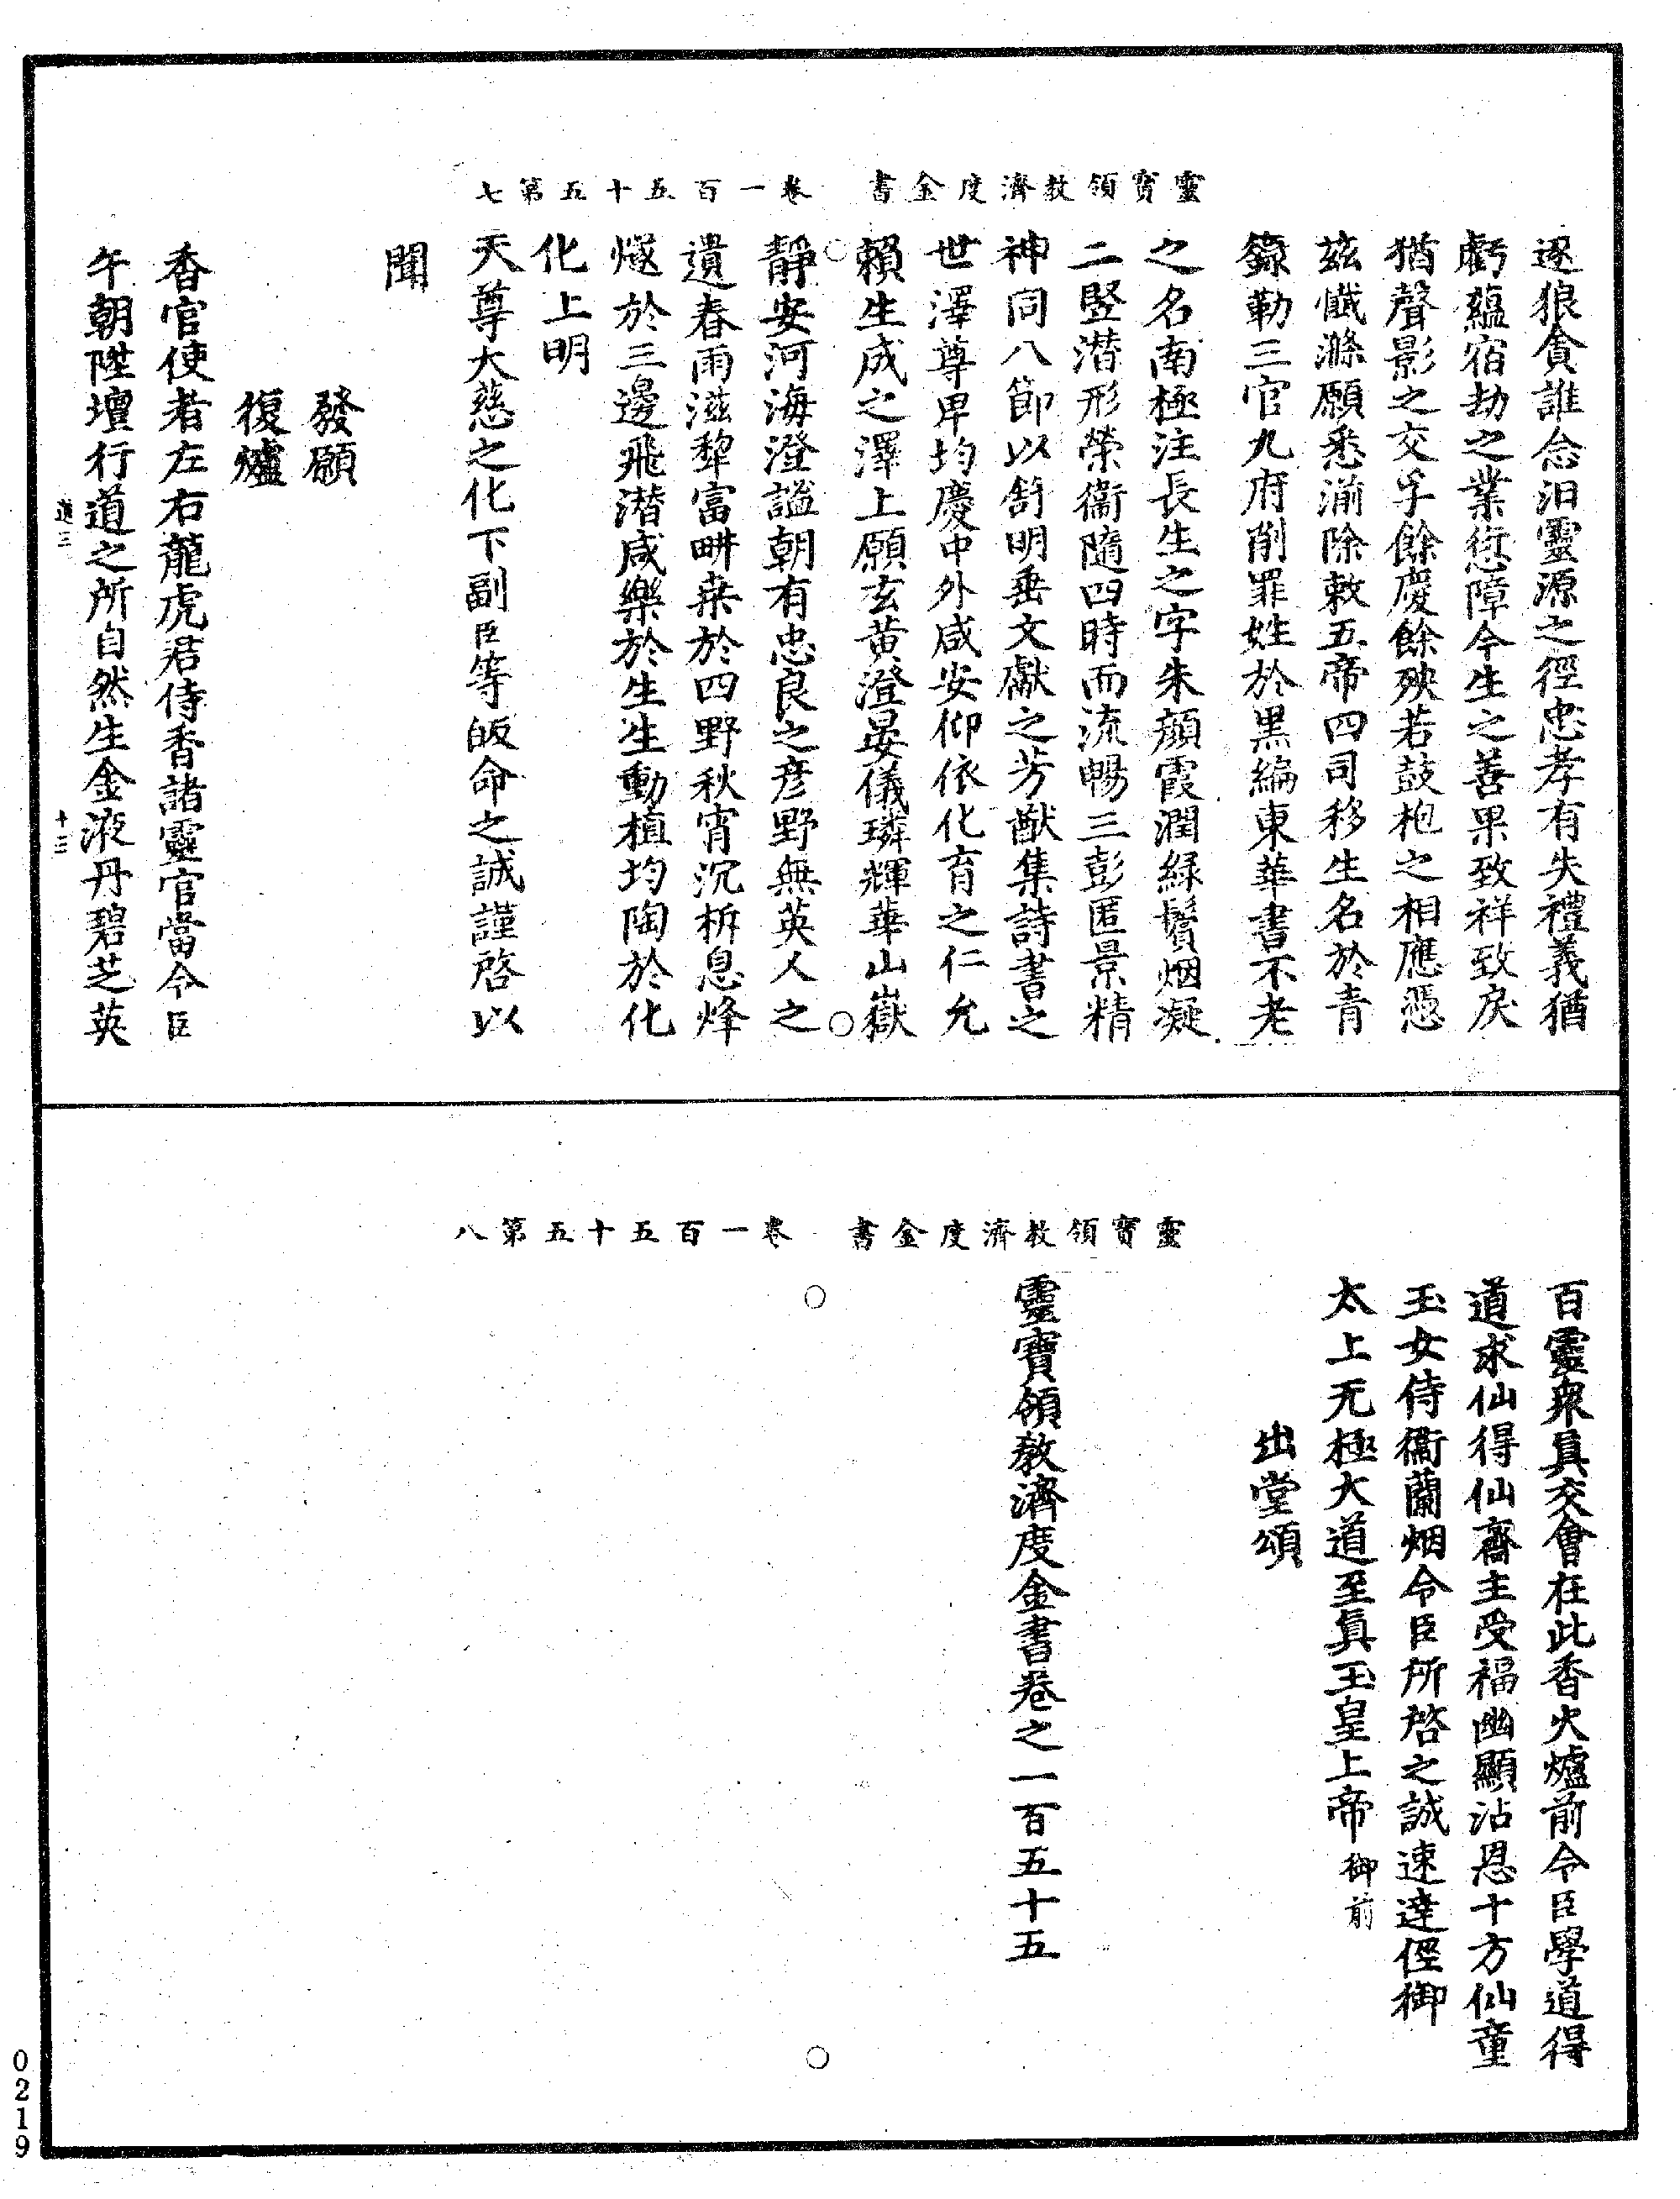 靈寶領教濟度金書　卷一百五十五第七
逐狼貪誰念汩靈源之徑忠孝有失禮義猶
虧蘊宿劫之業愆障今生之善果致祥致戾
猶聲影之交孚餘慶餘殃若鼓枹之相應憑
玆懺滌願悉湔除敕五帝四司移生名於青
籙勒三官九府削罪姓於黑編東華書不老
之名南極注長生之字朱顏霞潤緑鬢烟凝
二竪潛形榮衞隨四時而流暢三彭匿景精
神同八節以舒明垂文獻之芳猷集詩書之
世澤尊卑均慶中外咸安仰依化育之仁允
賴生成之澤上願玄黄澄晏儀璘輝華山嶽
靜安河海澄謐朝有忠良之彦野無英人之
遺春雨滋犂富畊桒於四野秋宵沉柝息烽
燧於三邊飛潛咸樂於生生動植均陶於化
化上明
天尊大慈之化下副臣等皈命之誠謹啓以
聞
發願
復爐
香官使者左右龍虎君侍香諸靈官當令臣
午朝陞壇行道之所自然生金液丹碧芝英
進三　十三
靈寶領教濟度金書　卷一百五十五第八
百靈衆真交會在此香火爐前令臣學道得
道求仙得仙齋主受福幽顯沾恩十方仙童
玉女侍衞蘭烟令臣所啓之誠速達徑御
太上无極大道至真玉皇上帝御前
出堂頌
靈寶領教濟度金書卷之一百五十五
0219